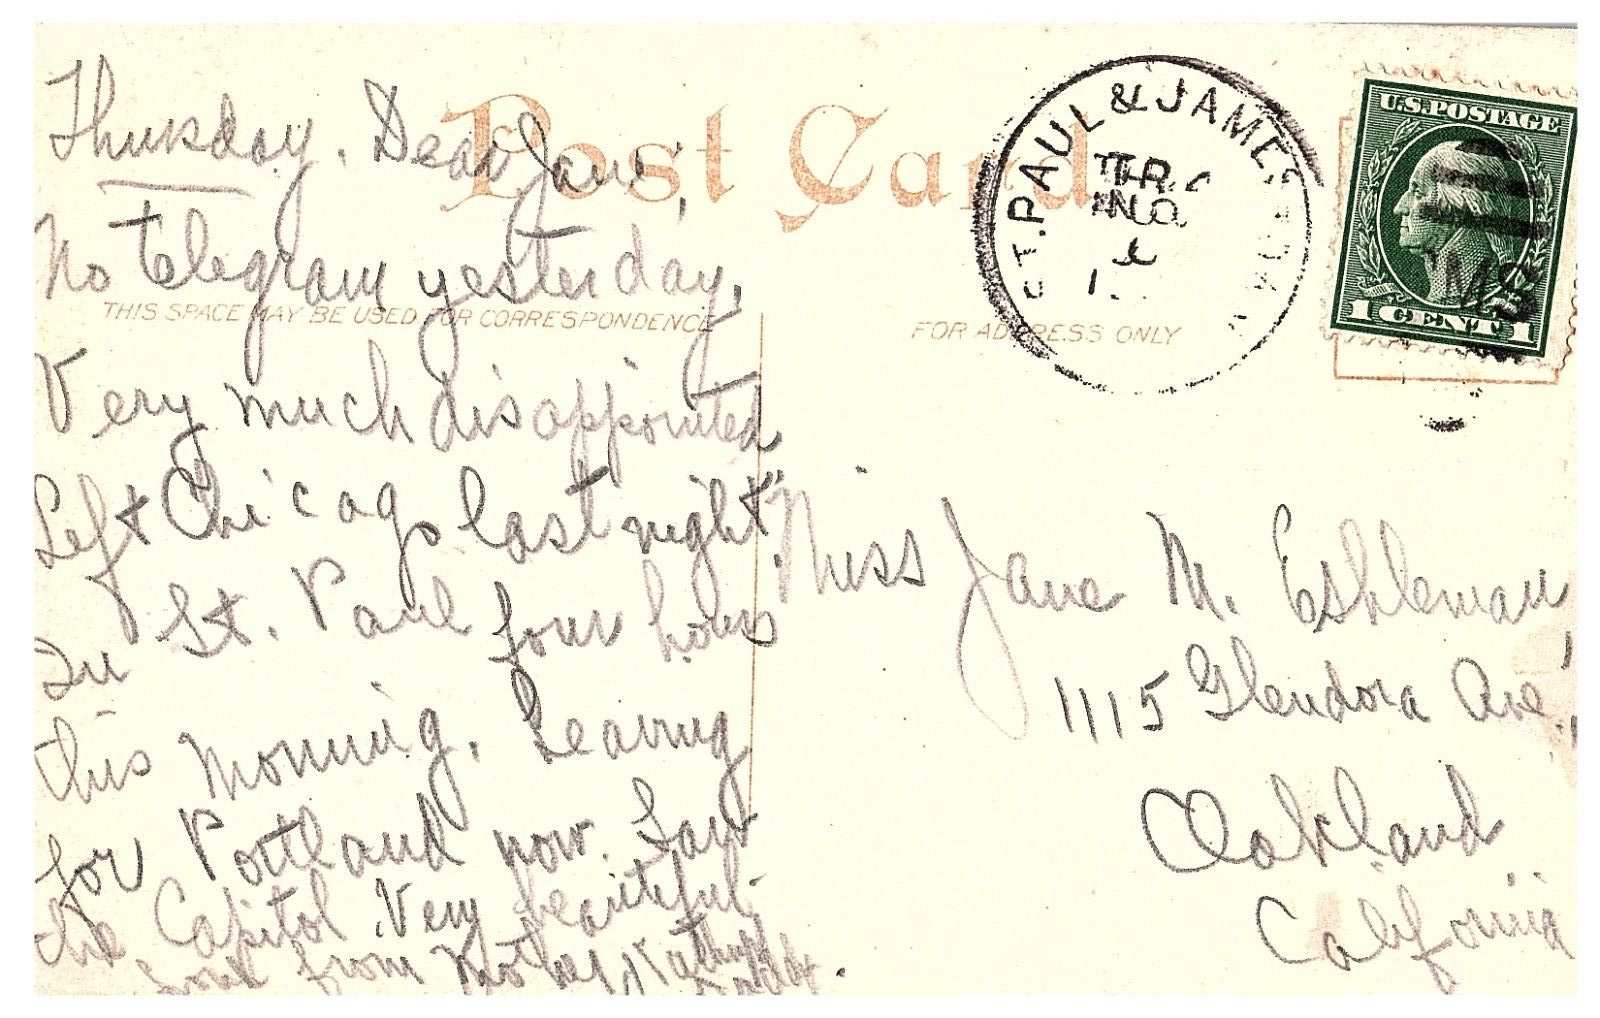 Post Card
THIS SPACE MAY BE USED FOR CORRESPONDENCE
FOR ADDRESS ONLY
ST. PAUL & JAMES
TR.
NO.
U.S. POSTAGE
1 CENT 1
Thursday. Dear Jane,
No telegram yesterday,
Very much disappointed
Left Chicago last night
In St. Paul four hours
this morning. Leaving
for Portland now. Saw
the Capitol. Very beautiful.
from Mother
Miss Jane M. Eshleman
1115 Glendora Ave.,
Oakland
California